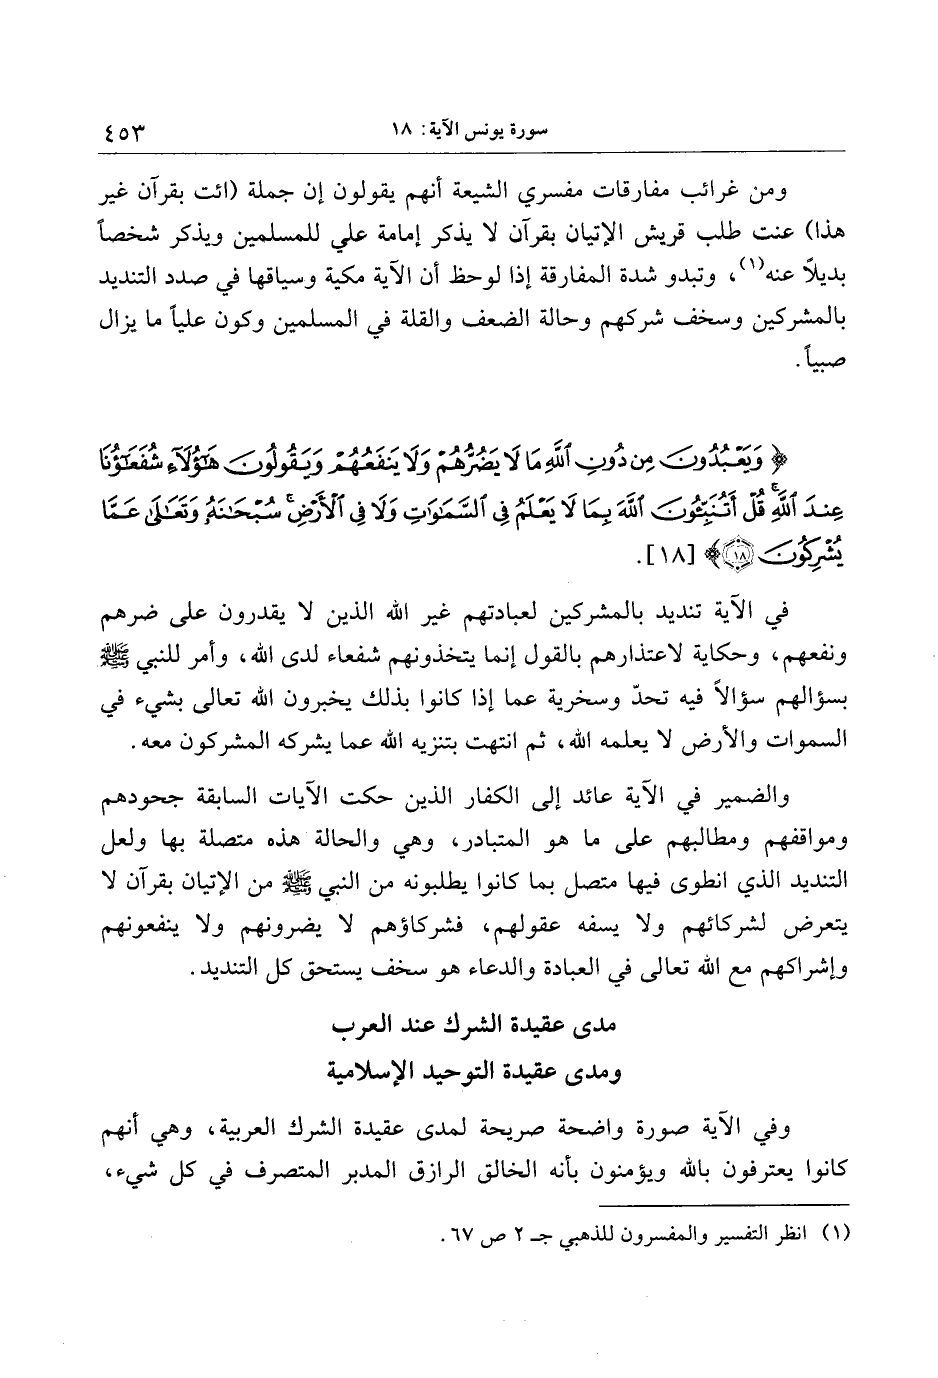 سورة يونس الآية: ١٨
٤٥٣
ومن غرائب مفارقات مفسري الشيعة أنهم يقولون إن جملة (ائت بقرآن غير
هذا) عنت طلب قريش الإتيان بقرآن لا يذكر إمامة علي للمسلمين ويذكر شخصاً
بديلاً عنه(١)، وتبدو شدة المفارقة إذا لوحظ أن الآية مكية وسياقها في صدد التنديد
بالمشركين وسخف شركهم وحالة الضعف والقلة في المسلمين وكون علياً ما يزال
صبياً.
﴿ وَيَعْبُدُونَ مِن دُونِ ٱللَّهِ مَا لَا يَضُرُّهُمْ وَلَا يَنفَعُهُمْ وَيَقُولُونَ هَٰٓؤُلَآءِ شُفَعَٰٓؤُنَا
عِندَ ٱللَّهِ ۚ قُلْ أَتُنَبِّـُٔونَ ٱللَّهَ بِمَا لَا يَعْلَمُ فِى ٱلسَّمَٰوَٰتِ وَلَا فِى ٱلْأَرْضِ ۚ سُبْحَٰنَهُۥ وَتَعَٰلَىٰ عَمَّا
يُشْرِكُونَ ١٨﴾ [١٨].
في الآية تنديد بالمشركين لعبادتهم غير الله الذين لا يقدرون على ضرهم
ونفعهم، وحكاية لاعتذارهم بالقول إنما يتخذونهم شفعاء لدى الله، وأمر للنبي ﷺ
بسؤالهم سؤالاً فيه تحدّ وسخرية عما إذا كانوا بذلك يخبرون الله تعالى بشيء في
السموات والأرض لا يعلمه الله، ثم انتهت بتنزيه الله عما يشركه المشركون معه.
والضمير في الآية عائد إلى الكفار الذين حكت الآيات السابقة جحودهم
ومواقفهم ومطالبهم على ما هو المتبادر، وهي والحالة هذه متصلة بها ولعل
التنديد الذي انطوى فيها متصل بما كانوا يطلبونه من النبي ﷺ من الإتيان بقرآن لا
يتعرض لشركائهم ولا يسفه عقولهم، فشركاؤهم لا يضرونهم ولا ينفعونهم
وإشراكهم مع الله تعالى في العبادة والدعاء هو سخف يستحق كل التنديد.
مدى عقيدة الشرك عند العرب
ومدى عقيدة التوحيد الإسلامية
وفي الآية صورة واضحة صريحة لمدى عقيدة الشرك العربية، وهي أنهم
كانوا يعترفون بالله ويؤمنون بأنه الخالق الرازق المدبر المتصرف في كل شيء،
(١) انظر التفسير والمفسرون للذهبي جـ ٢ ص ٦٧.